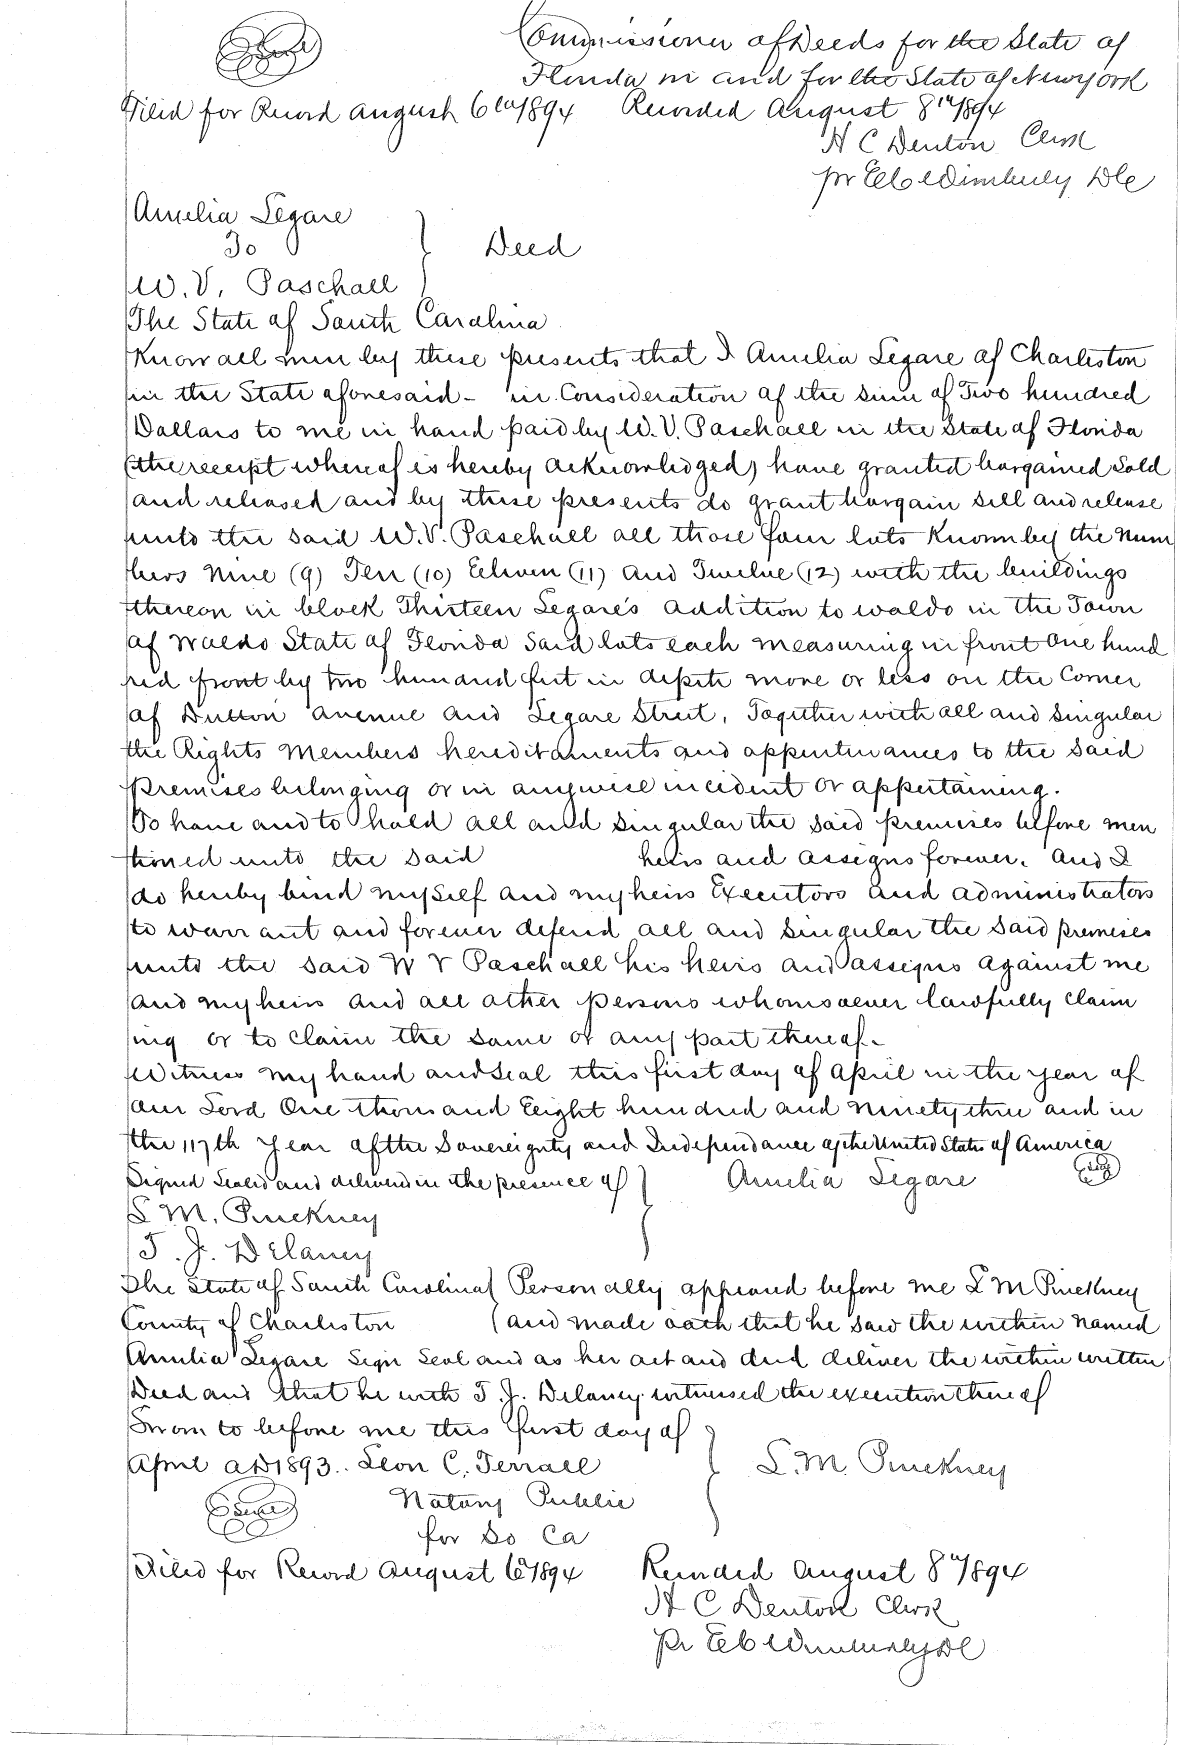 Commissioner of Deeds for the State of
Seal
Florida in and for the State of New york
Filed for Record august 6th 1894 Recorded August 8th 1894
H C Denton Clerk
pr Wimberly DC
Amelia Legare
To } Deed
W. V. Paschall
The State of South Carolina
Know all men by these presents that I Amelia Legare of Charleston
in the State aforesaid - in Consideration of the sum of Two hundred
Dollars to me in hand paid by W. V. Paschall in the State of Florida
(the receipt whereof is hereby acknowledged) have granted bargained Sold
and released and by these presents do grant bargain sell and release
unto the said W. V. Paschall all those four lots Known by the Num
bers Nine (9) Ten (10) Eleven (11) and Twelve (12) with the buildings
thereon in block Thirteen Legare's addition to Waldo in the Town
of Waldo State of Florida Said lots each measuring in front One hund
red front by two hundred feet in depth more or less on the Corner
of Dutton avenue and Legare Street, Together with all and Singular
the Rights Members hereditaments and appurtenances to the said
Premises belonging or in anywise incident or appertaining.
To have and to hold all and Singular the said premises before men
tioned unto the said heirs and assigns forever. And I
do hereby bind myself and my heirs Executors and administrators
to warrant and forever defend all and singular the said premises
unto the said W V Paschall his heirs and assigns against me
and my heirs and all other persons whomsoever lawfully claim
ing or to claim the same or any part thereof.
Witness my hand and seal this first day of April in the year of
our Lord One thousand Eight hundred and ninety three and in
the 117th Year of the Sovereignty and Independance of the United States of America
Signed Sealed and delivered in the presence of } Amelia Legare Seal
L M. Pinckney
T. J. Delaney
The State of South Carolina ( Personally appeared before me L M Pinckney
County of Charleston ( and made oath that he saw the within named
Amelia Legare Sign Seal and as her act and deed deliver the within written
Deed and that he with T. J. Delaney witnessed the execution thereof
Sworn to before me this first day of }
April AD 1893. Leon C. Terrall L. M. Pinckney
Seal Notary Public
for So Ca
Filed for Record august 6th 1894 Recorded August 8th 1894
H C Denton Clerk
pr Wimberly DC